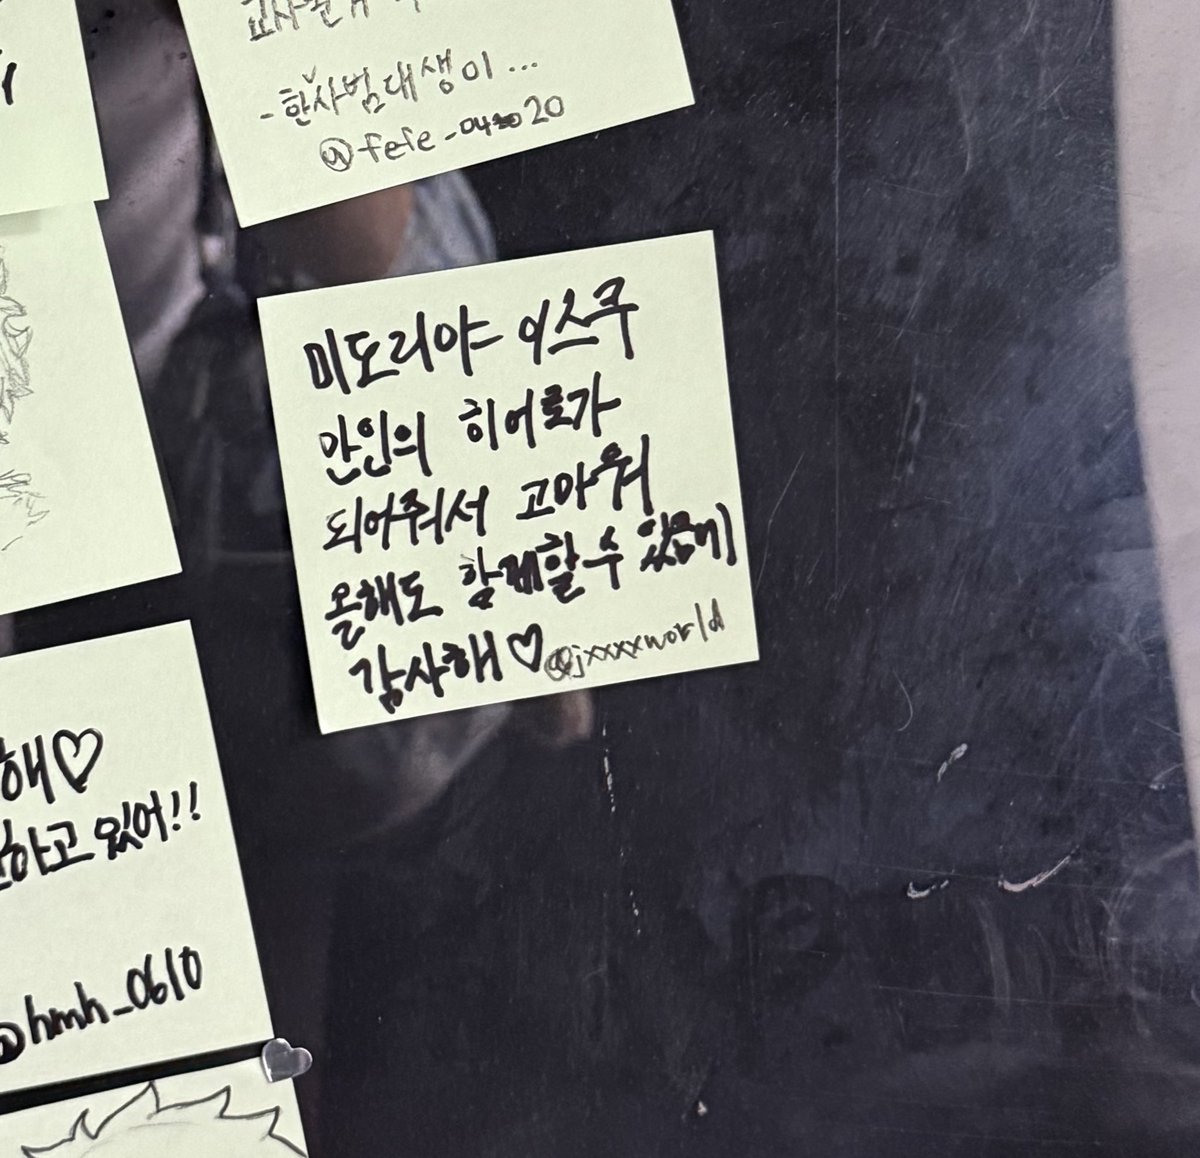 - 한사범대생이...
@fefe_042020
미도리야 이즈쿠
만인의 히어로가
되어줘서 고마워
올해도 함께할 수 있음에
감사해♡ @jxxxxworld
해♡
하고 있어!!
@hmh_0610